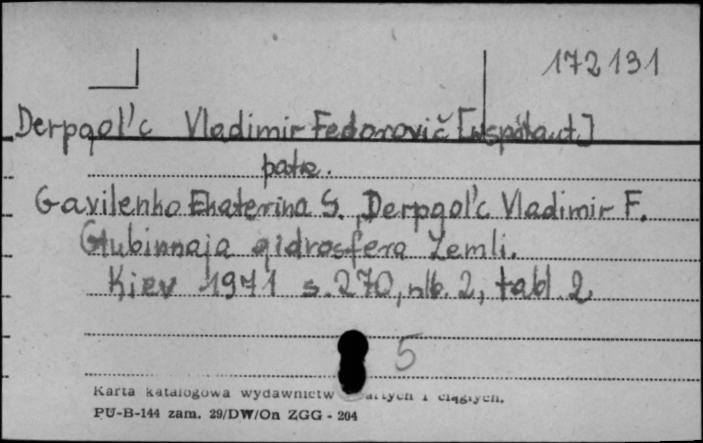 172131
Derpgol'c Vladimir Fedorovič [współaut.]
patrz.
Gavilenko Ekaterina S., Derpgol'c Vladimir F.
Glubinnaja gidrosfera Zemli.
Kiev 1971 s. 270, nlb. 2, tabl. 2
5
Karta katalogowa wydawnictw zwartych i ciągłych.
PU-B-144 zam. 29/DW/On ZGG - 204